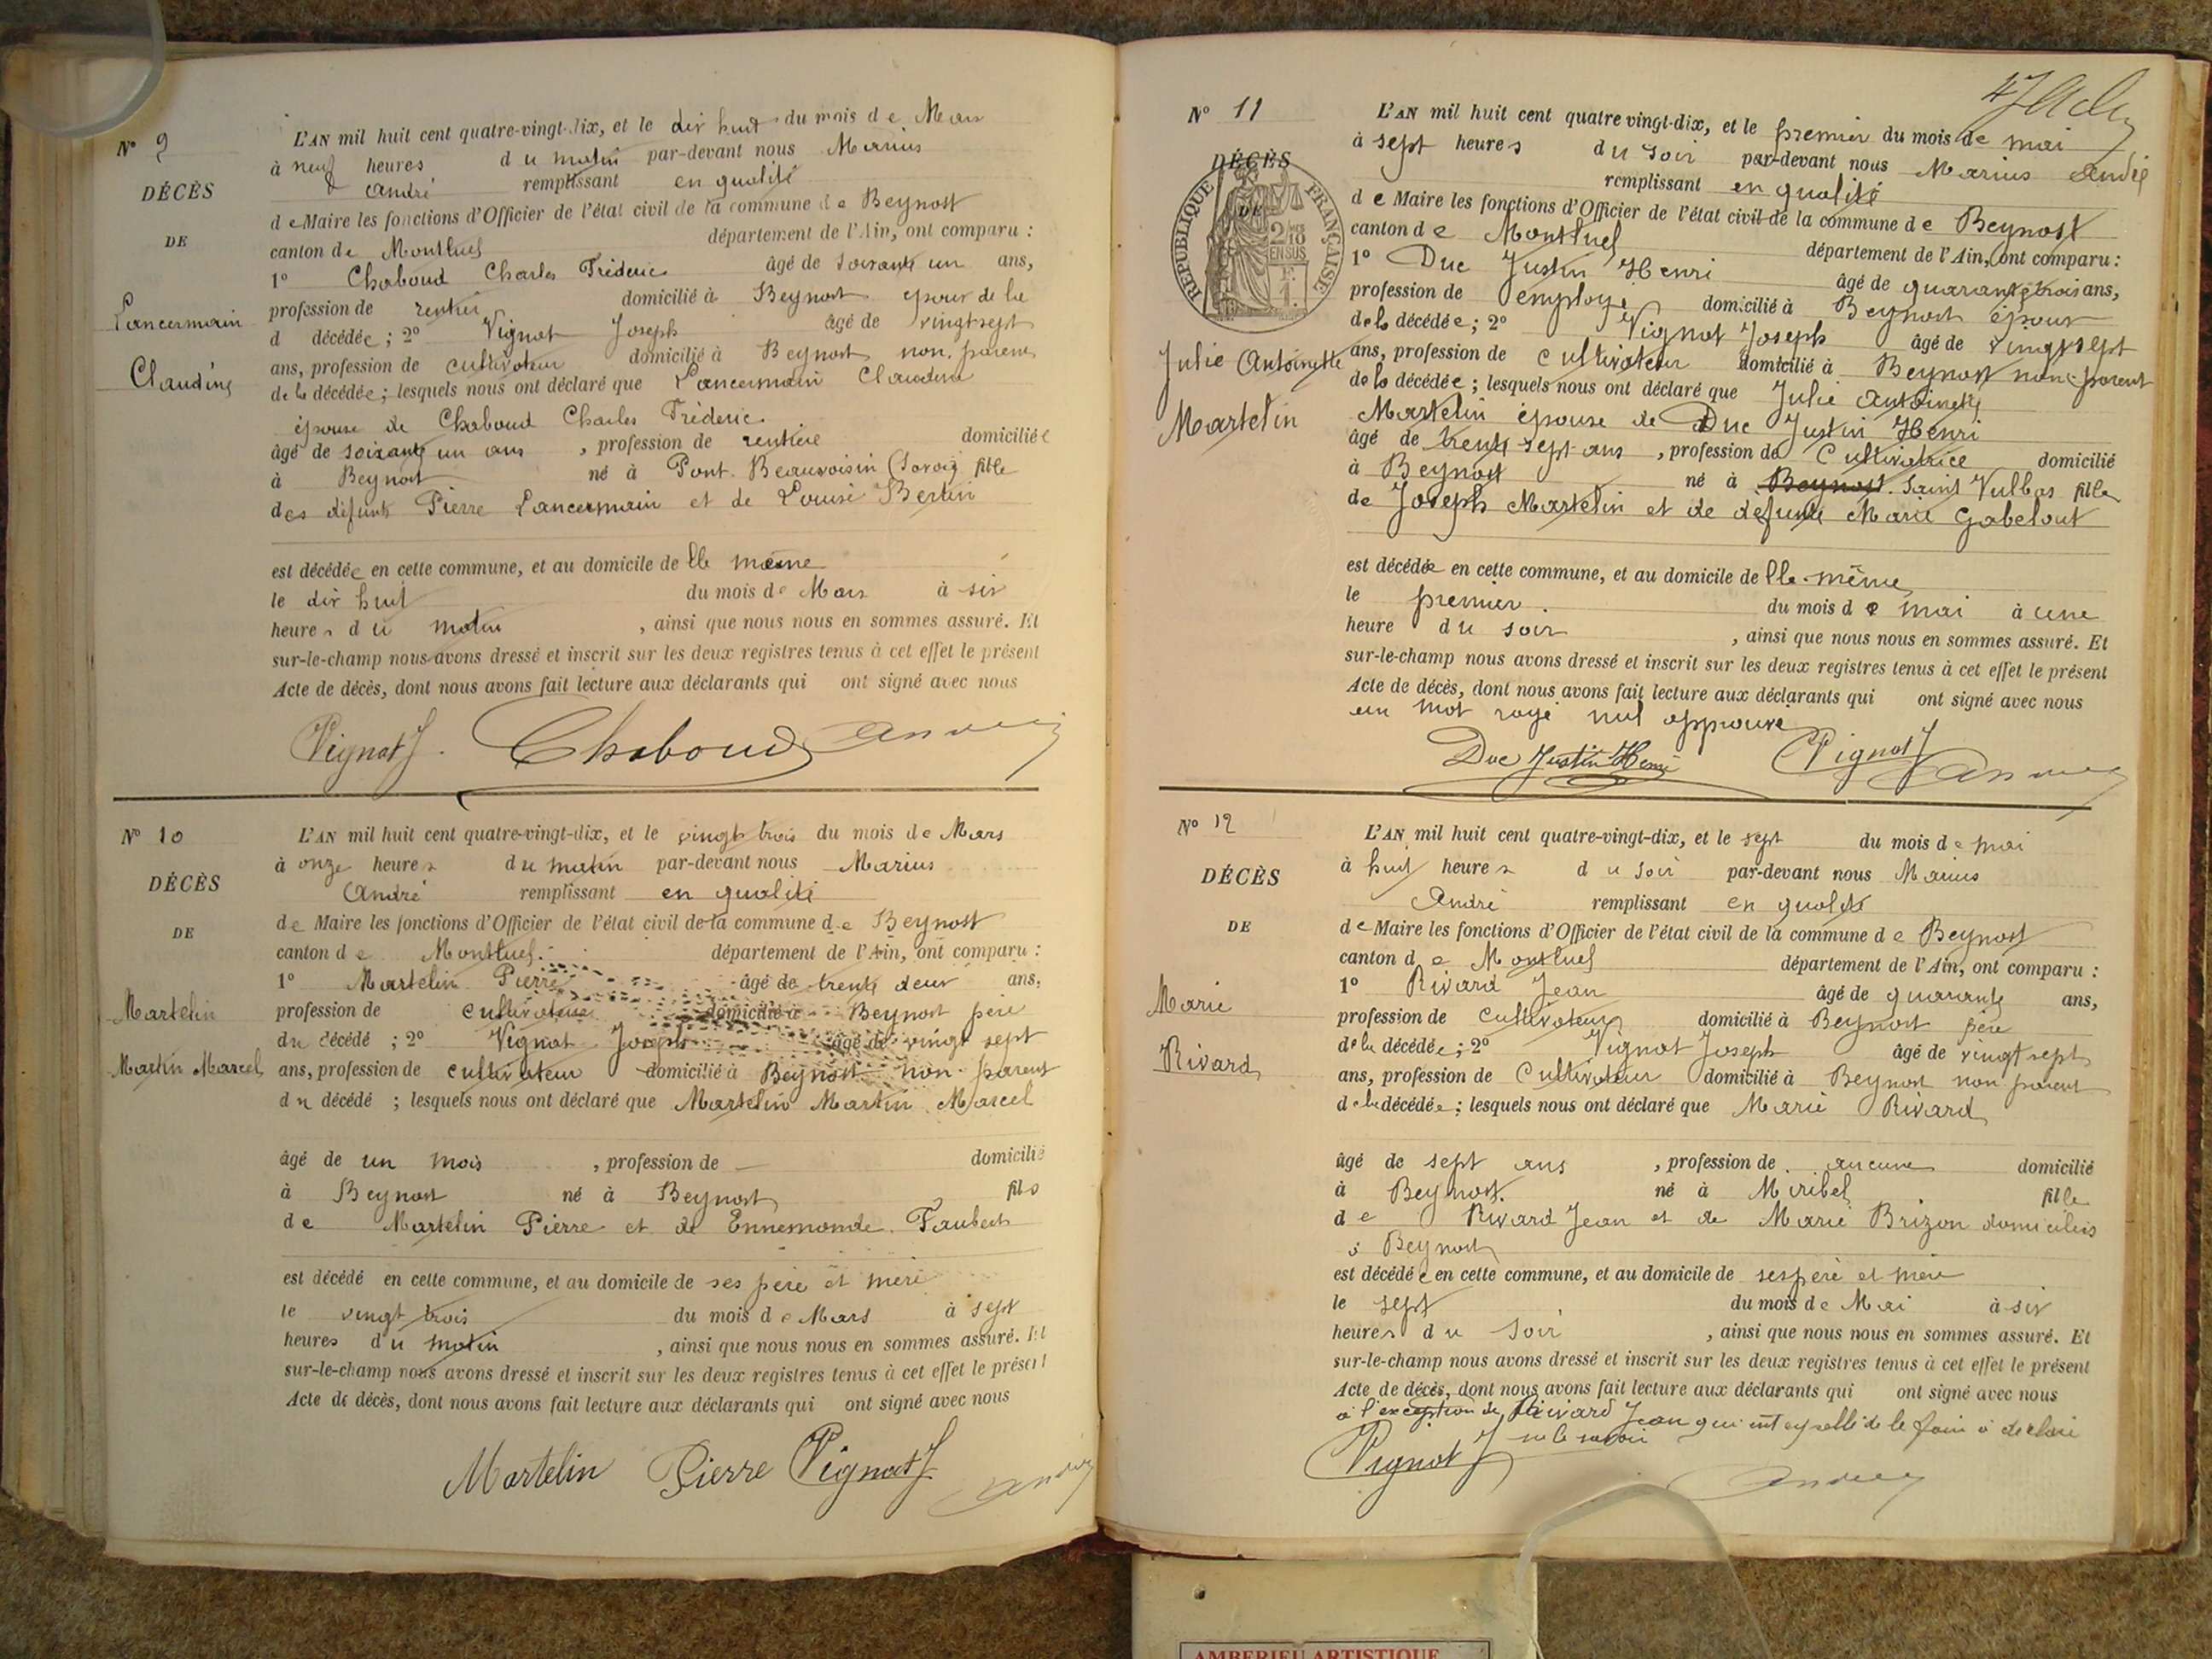 N° 9
DÉCÈS
DE
Lancermain
Claudine
L'AN mil huit cent quatre-vingt-dix, et le dix huit du mois de Mars
à neuf heures du matin par-devant nous Marius
André remplissant en qualité
de Maire les fonctions d'Officier de l'état civil de la commune de Beynost
canton de Montluel département de l'Ain, ont comparu :
1° Chaboud Charles Fréderic âgé de soixante un ans,
profession de rentier domicilié à Beynost epoux de la
d décédée ; 2° Vignat Joseph âgé de vingt sept
ans, profession de cultivateur domicilié à Beynost non parent
de la décédée ; lesquels nous ont déclaré que Lancermain Claudine
épouse de Chaboud Charles Fréderic
âgé de soixante un ans , profession de rentière domiciliée
à Beynost né à Pont-Beauvoisin (Savoie) fille
des défunts Pierre Lancermain et de Louise Bertin
est décédée en cette commune, et au domicile de lle même
le dix huit du mois de Mars à six
heures du matin , ainsi que nous nous en sommes assuré. Et
sur-le-champ nous avons dressé et inscrit sur les deux registres tenus à cet effet le présent
Acte de décès, dont nous avons fait lecture aux déclarants qui ont signé avec nous
Vignat J. Chaboud André
N° 10
DÉCÈS
DE
Martelin
Martin Marcel
L'AN mil huit cent quatre-vingt-dix, et le vingt trois du mois de Mars
à onze heures du matin par-devant nous Marius
André remplissant en qualité
de Maire les fonctions d'Officier de l'état civil de la commune de Beynost
canton de Montluel. département de l'Ain, ont comparu :
1° Martelin Pierre âgé de trente deux ans,
profession de cultivateur domicilié à Beynost père
du décédé ; 2° Vignat Joseph âgé de vingt sept
ans, profession de cultivateur domicilié à Beynost non parent
du décédé ; lesquels nous ont déclaré que Martelin Martin Marcel
âgé de un mois , profession de — domicilié
à Beynost né à Beynost fils
de Martelin Pierre et de Ennemonde Faubert
est décédé en cette commune, et au domicile de ses père et mère
le vingt trois du mois de Mars à sept
heures du matin , ainsi que nous nous en sommes assuré. Et
sur-le-champ nous avons dressé et inscrit sur les deux registres tenus à cet effet le présent
Acte de décès, dont nous avons fait lecture aux déclarants qui ont signé avec nous
Martelin Pierre Vignat J. André
N° 11
DÉCÈS
DE
RÉPUBLIQUE FRANÇAISE
2/10 EN SUS
Julie Antoinette
Martelin
L'AN mil huit cent quatre vingt-dix, et le premier du mois de mai
à sept heures du soir par-devant nous Marius André
remplissant en qualité
de Maire les fonctions d'Officier de l'état civil de la commune de Beynost
canton de Montluel département de l'Ain, ont comparu :
1° Duc Justin Henri âgé de quarante trois ans,
profession de employé domicilié à Beynost époux
de la décédée ; 2° Vignat Joseph âgé de vingt sept
ans, profession de cultivateur domicilié à Beynost non parent
de la décédée ; lesquels nous ont déclaré que Julie Antoinette
Martelin épouse de Duc Justin Henri
âgé de trente sept ans , profession de Cultivatrice domicilié
à Beynost né à Beynost Saint Vulbas fille
de Joseph Martelin et de defunte Marie Gabelout
est décédée en cette commune, et au domicile de lle-même
le premier. du mois de mai à une
heure du soir , ainsi que nous nous en sommes assuré. Et
sur-le-champ nous avons dressé et inscrit sur les deux registres tenus à cet effet le présent
Acte de décès, dont nous avons fait lecture aux déclarants qui ont signé avec nous
un mot rayé nul approuvé
Duc Justin Henri Vignat J André
N° 12
DÉCÈS
DE
Marie
Rivard
L'AN mil huit cent quatre-vingt-dix, et le sept du mois de mai
à huit heures du soir par-devant nous Marius
André remplissant en qualité
de Maire les fonctions d'Officier de l'état civil de la commune de Beynost
canton de Montluel département de l'Ain, ont comparu :
1° Rivard Jean âgé de quarante ans,
profession de cultivateur domicilié à Beynost père
de la décédée ; 2° Vignat Joseph âgé de vingt sept
ans, profession de Cultivateur domicilié à Beynost non parent
de la décédée ; lesquels nous ont déclaré que Marie Rivard
âgé de sept ans , profession de aucune domicilié
à Beynost. né à Miribel fille
de Rivard Jean et de Marie Brizon domiciliés
à Beynost
est décédée en cette commune, et au domicile de ses père et mère
le sept du mois de Mai à six
heures du soir , ainsi que nous nous en sommes assuré. Et
sur-le-champ nous avons dressé et inscrit sur les deux registres tenus à cet effet le présent
Acte de décès, dont nous avons fait lecture aux déclarants qui ont signé avec nous
à l'exception de Rivard Jean qui de le faire a declaré
ne le savoir
Vignat J André
AMBERIEU ARTISTIQUE